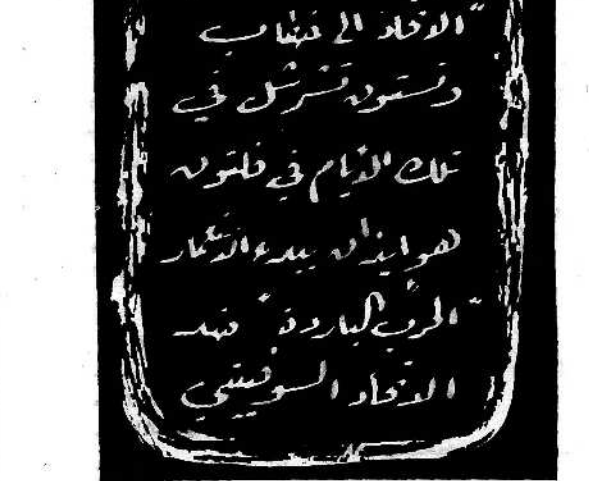 "الاتحاد الى خطاب
ونستون تشرشل في
تلك الايام في فلتون
هو ايذان ببدء
"الحرب الباردة" ضد
الاتحاد السوفيتي